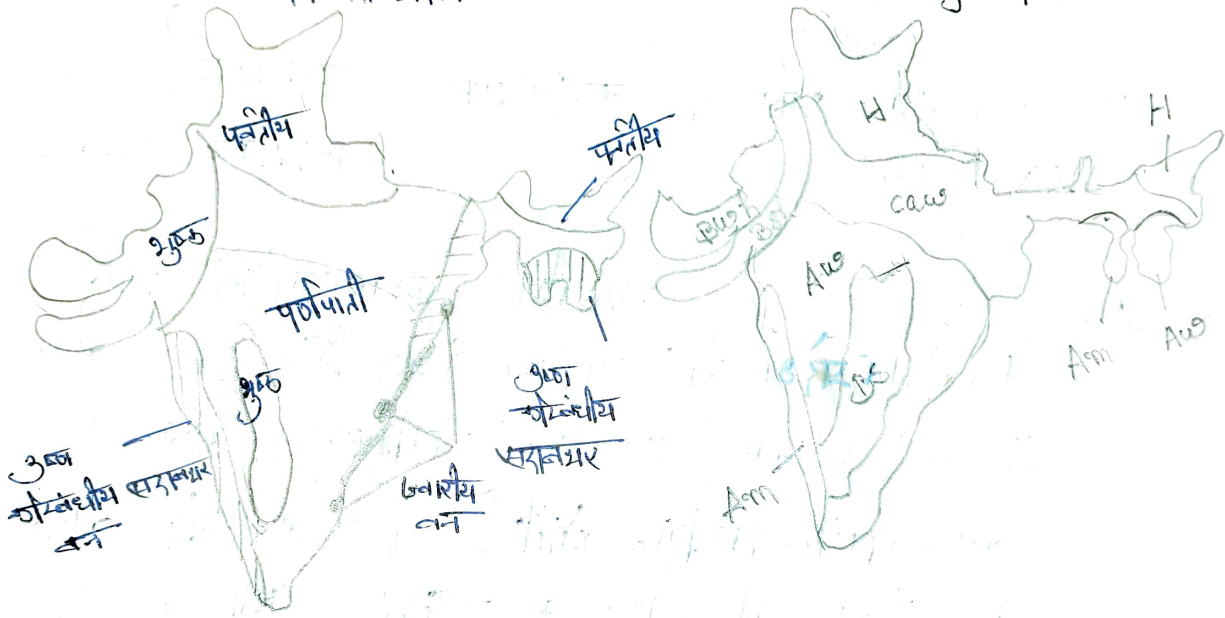 पर्वतीय
पर्वतीय
शुष्क
पर्णपाती
शुष्क
उष्ण
कटिबंधीय
सदाबहार
उष्ण
कटिबंधीय सदाबहार
वन
ज्वारीय
वन
H
H
caw
Bwh
Bsh
Aw
Am
Aw
Am